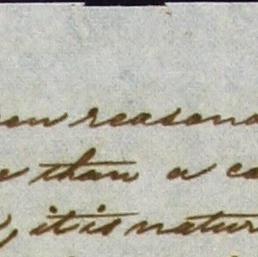 en reasona
than a ca
, it is natur